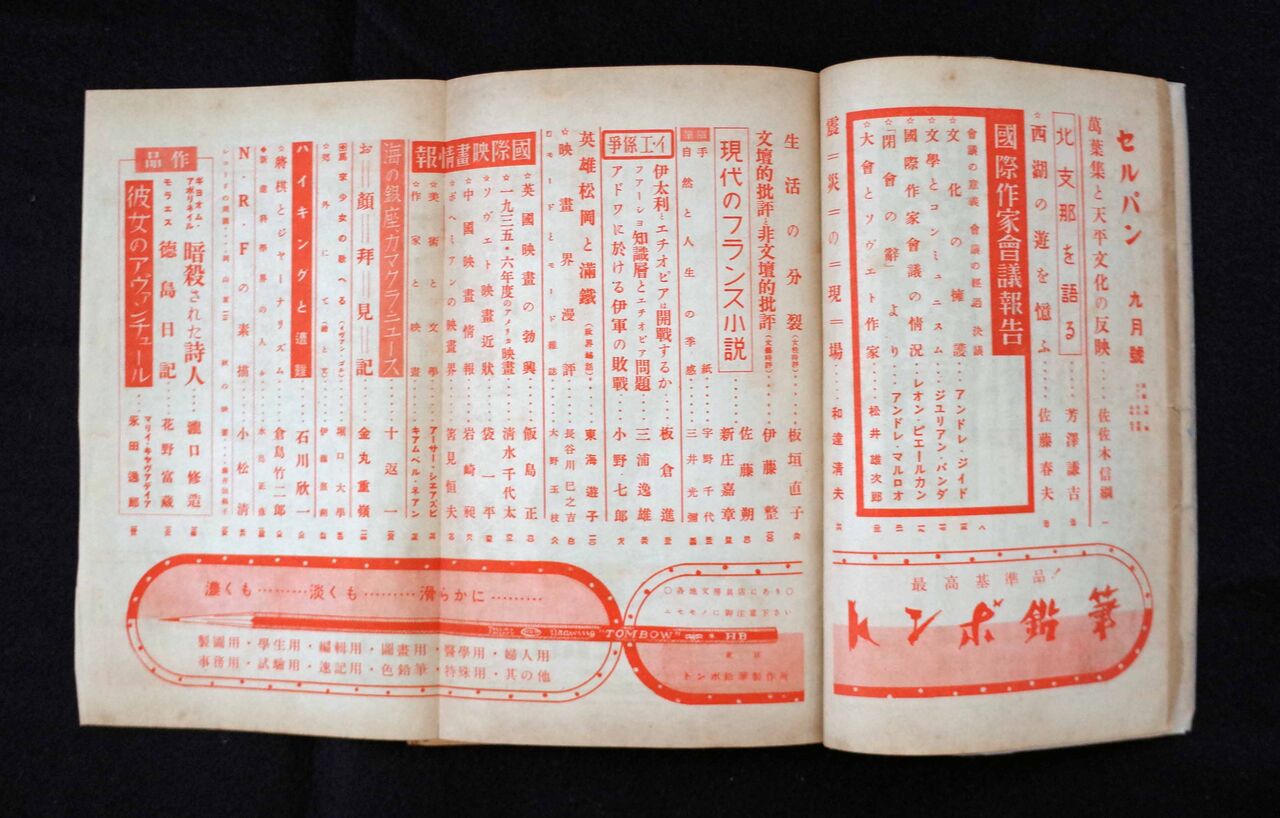 セルパン 九月號
萬葉集と天平文化の反映……佐佐木信綱
北支那を語る……芳澤謙吉
☆西湖の遊を憶ふ……佐藤春夫
國際作家會議報告
會議の意義 會議の經過 決議
☆文化の擁護……アンドレ・ジイド
☆文學とコンミュニスム……ジュリアン・バンダ
☆國際作家會議の情況……レオン・ピエールカン
☆「閉會の辭」より……アンドレ・マルロオ
☆大會とソヴエト作家……松井雄次郎
震=災=の=現=場……和達清夫
生活の分裂……板垣直子
文壇的批評と非文壇的批評(文藝時評)……伊藤整
現代のフランス小説……佐藤朔
新庄嘉章
隨筆
手紙……宇野千代
自然と人生の季感……三井光彌
イ・エ係爭
伊太利とエチオピアは開戰するか……板倉進
フアーショ知識層とエチオピア問題……三浦逸雄
アドワに於ける伊軍の敗戰……小野七郎
英雄松岡と滿鐵(政界縱話)……東海遊子
☆映畫界漫評……長谷川巳之吉
☆モードとモード雜誌……大野玉枝
國際映畫情報
☆英國映畫の勃興……飯島正
☆一九三五・六年度のアメリカ映畫……清水千代太
☆ソヴエト映畫近狀……袋一平
☆中國映畫情報……岩崎昶
☆ボヘミアンの映畫界……筈見恒夫
☆美術と文學……アーサー・シエアズビ
☆作家と映畫……キアムベル・ネアン
海の銀座、カマクラニュース……十返一
お=顔=拜=見=記……金丸重嶺
堀口大學
ハイキングと遭難……石川欣一
☆將棋とジヤーナリズム……倉島竹二郎
◆新童科學界の人々
N・R・Fの素描……小松清
作品
ギヨオム・アポリネイル 暗殺された詩人……瀧口修造
モラエス 德島日記……花野富藏
彼女のアヴァンチュール……マリイ・キヤヴアデイア
永田逸郎
最高基準品!
トンボ鉛筆
○各地文房具店にあり○
ニセモノに御注意下さい
濃くも………淡くも………滑らかに………
DRAWING "TOMBOW" HB
製圖用・學生用・編輯用・圖畫用・醫學用・婦人用
事務用・試驗用・速記用・色鉛筆・特殊用・其の他
東京
トンボ鉛筆製作所